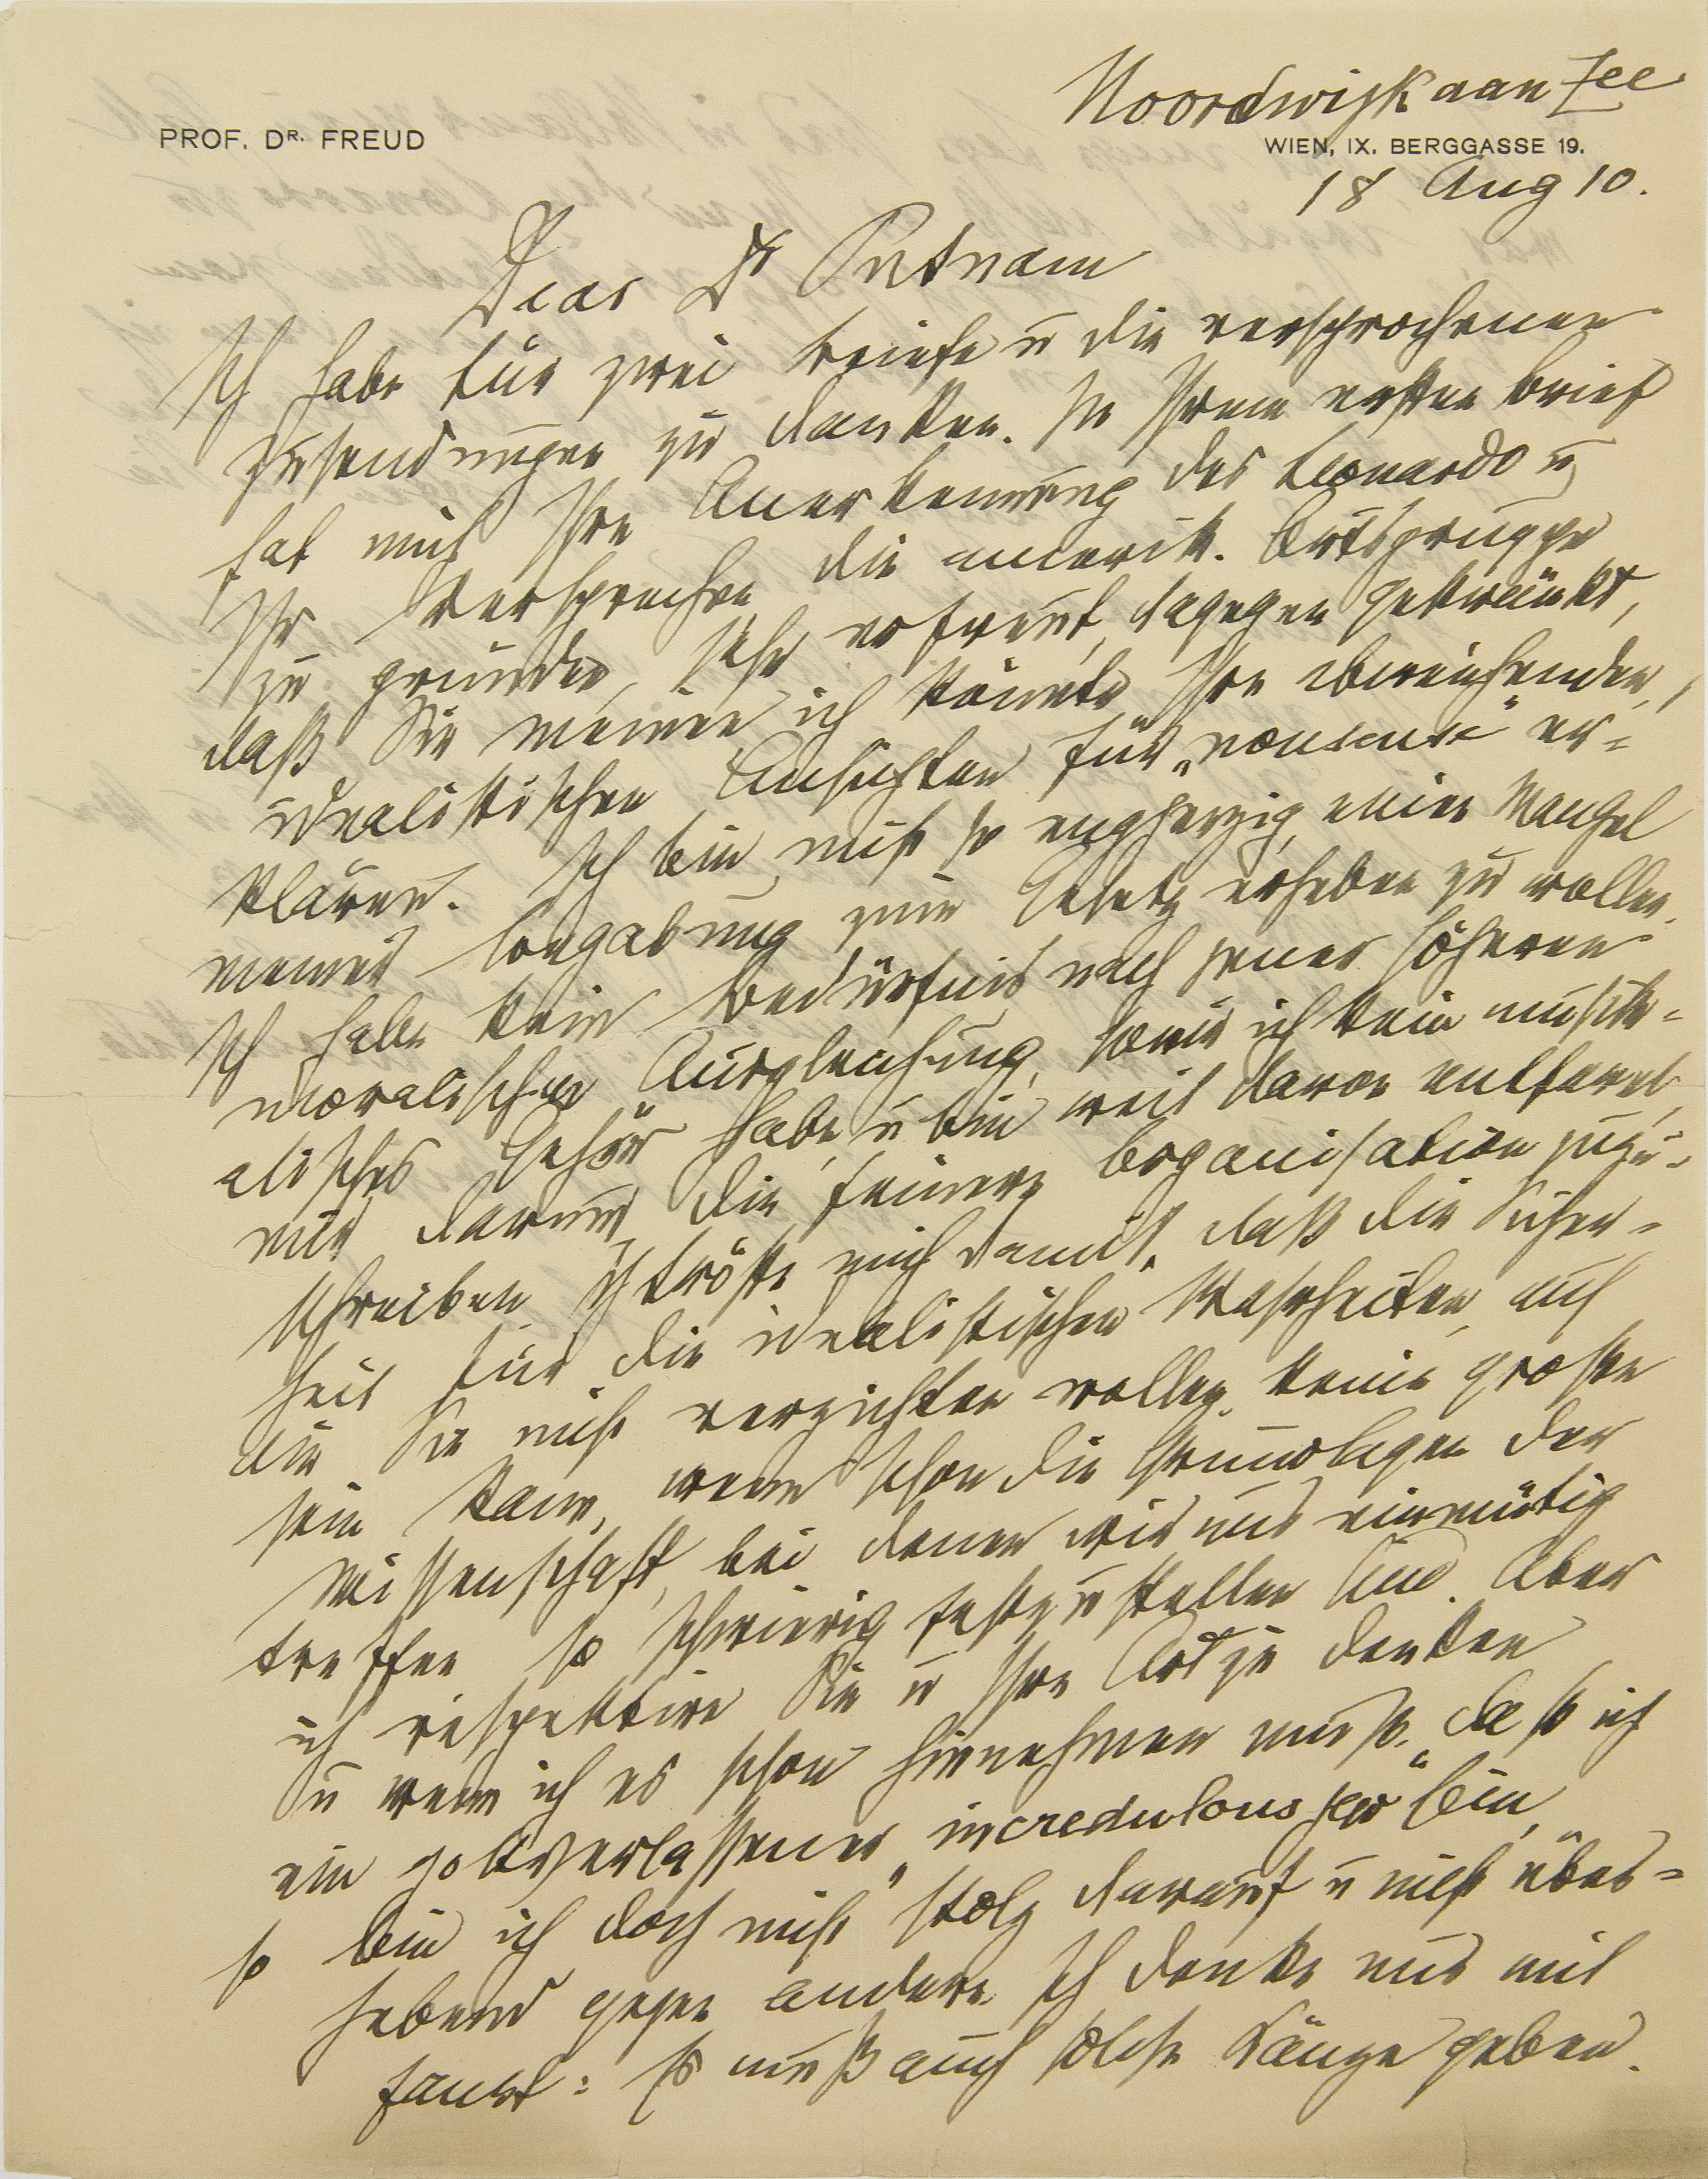 Noordwijk aan Zee
PROF. DR. FREUD
WIEN, IX. BERGGASSE 19.
18 Aug 10.
Dear Dr Putnam
Ich habe für zwei Briefe u die versprochenen
Zusendungen zu danken. In Ihrem ersten Brief
hat mich Ihre Anerkennung des Leonardo u
Ihr Versprechen die amerik. Ortsgruppe
zu gründen, sehr erfreut, dagegen gekränkt,
daß Sie meinen ich könnte Ihre abweichenden,
idealistischen Ansichten für „nonsense“ er=
klären. Ich bin nicht so engherzig, einen Mangel
meiner Begabung zum Gesetz erheben zu wollen.
Ich habe kein Bedürfnis nach jener höheren
moralischen Ausgleichung, sowie ich kein musik=
alisches Gehör habe, u bin weit davon entfernt,
mir darum die feinere Organisation zuzu=
schreiben. Ich tröste mich damit, daß die Sicher=
heit für die idealistischen Wahrheiten, auf
die Sie nicht verzichten wollen, keine große
sein kann, wenn schon die Grundlagen der
Wissenschaft, bei denen wir uns einmütig
treffen so schwierig festzustellen sind. Aber
ich respektire Sie u Ihre Art zu denken
u wenn ich es schon hinnehmen muß, daß ich
ein gottverlassener „incredulous jew“ bin,
so bin ich doch nicht stolz darauf u nicht über=
hebend gegen andere. Ich denke nur mit
Faust: Es muß auch solche Käuze geben.